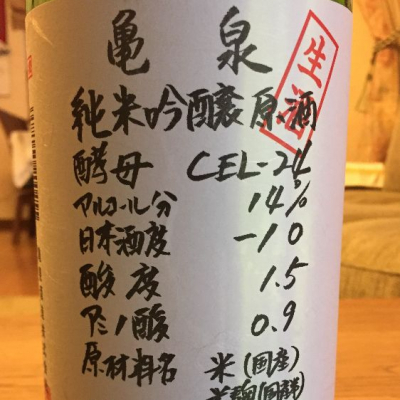 亀泉
生酒
純米吟醸原酒
酵母 CEL-24
アルコール分 14%
日本酒度 -10
酸度 1.5
アミノ酸 0.9
原材料名 米(国産)
米麹(国産)